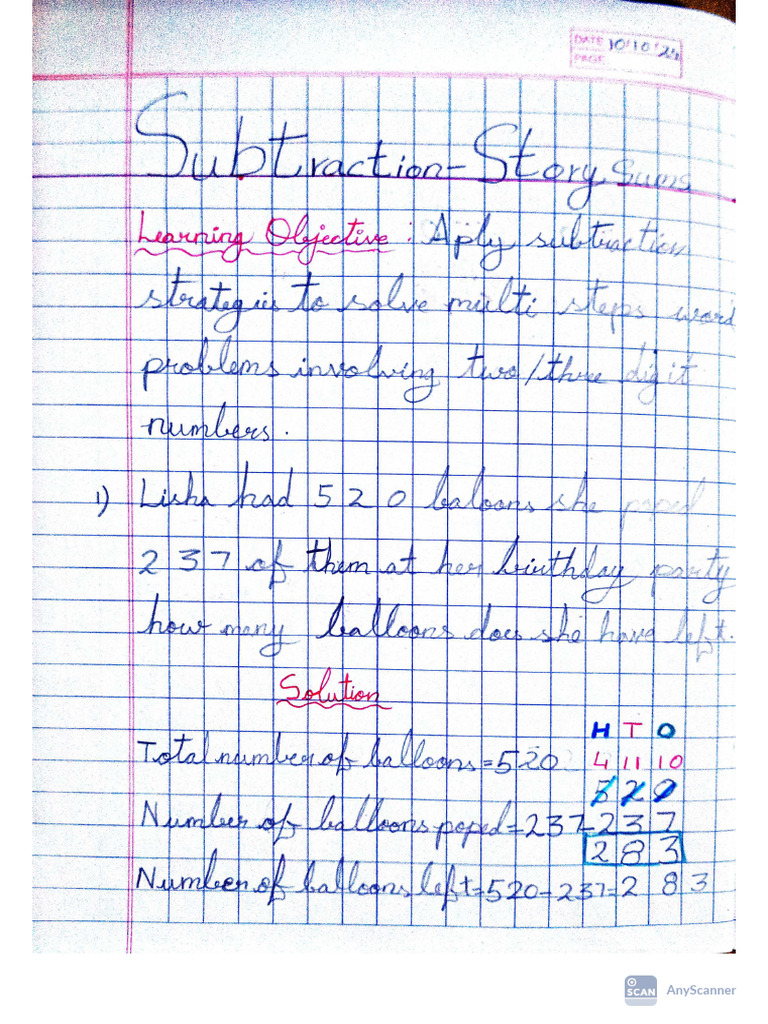 DATE 10/10/24
PAGE
Subtraction-Story Sums
Learning Objective : Aply subtraction
strategies to solve multi steps word
problems involving two/three digit
numbers.
1) Lisha had 520 baloons she poped
237 of them at her birthday party
how many balloons does she have left.
Solution
H T O
Total number of balloons=520 4 11 10
5 2 0
Number of balloons poped=237 -237
283
Number of balloons left=520-237=283
SCAN AnyScanner